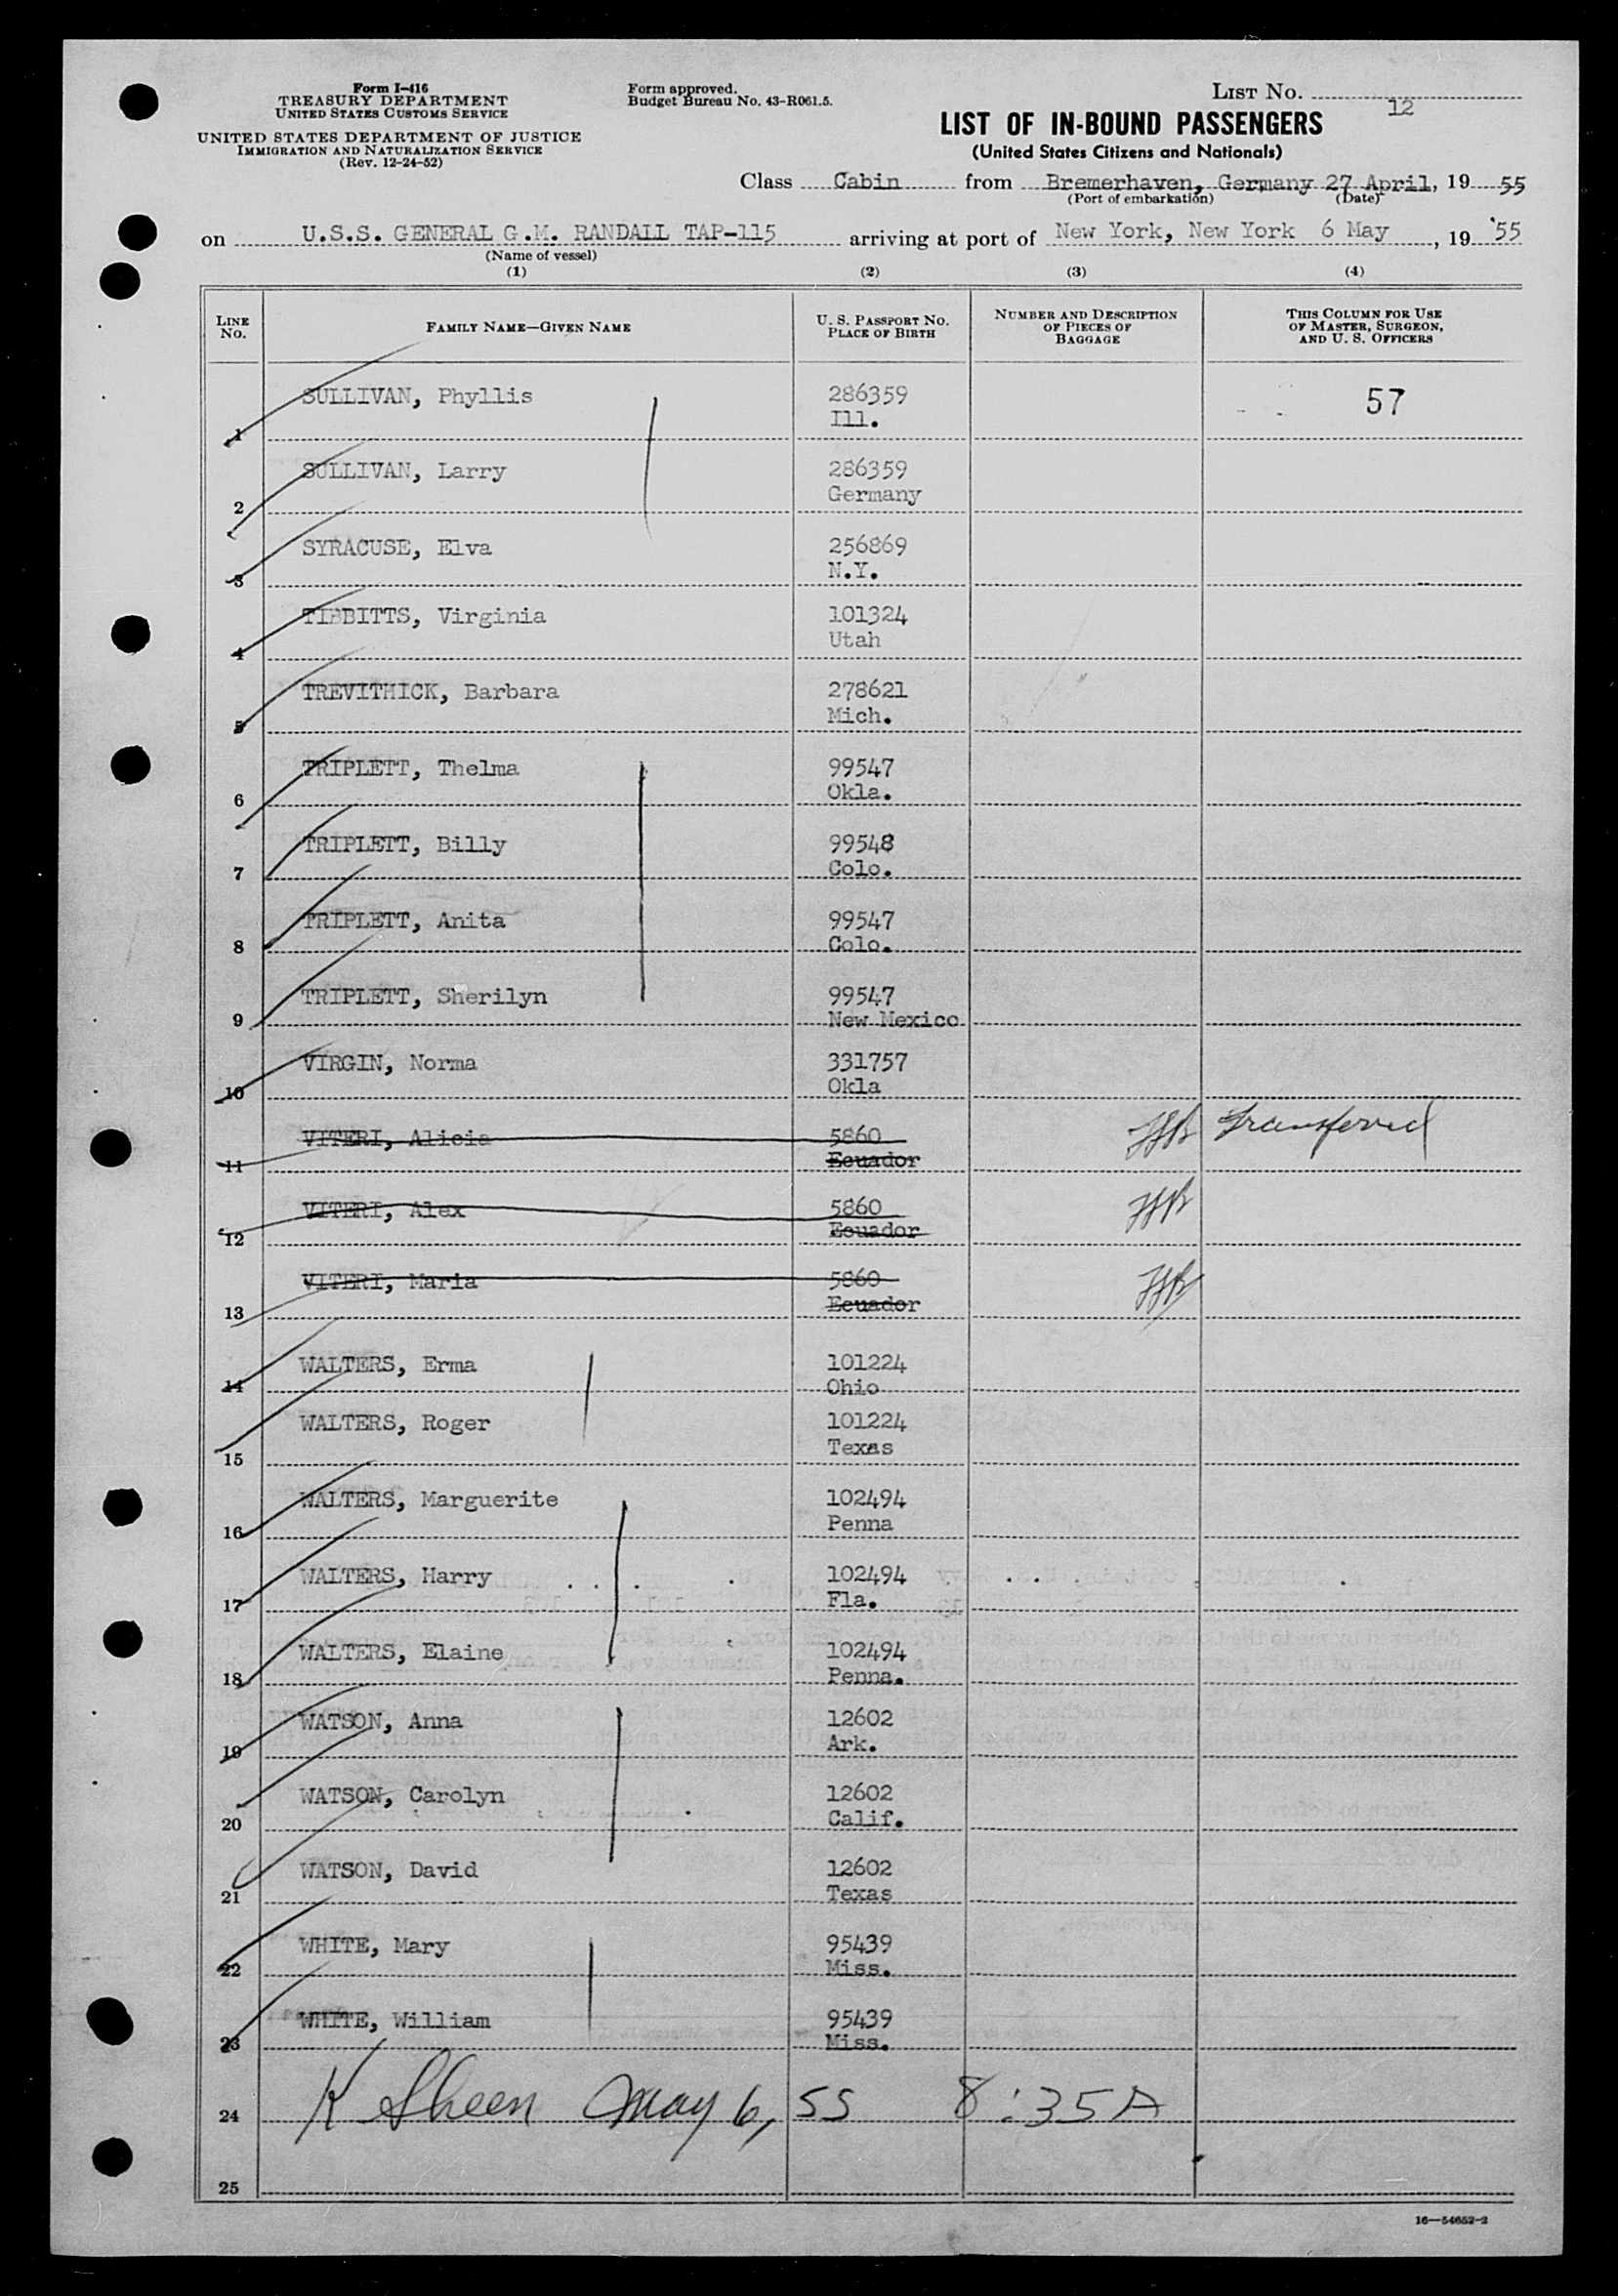 Form I-416
TREASURY DEPARTMENT
UNITED STATES CUSTOMS SERVICE
UNITED STATES DEPARTMENT OF JUSTICE
IMMIGRATION AND NATURALIZATION SERVICE
(Rev. 12-24-52)
Form approved.
Budget Bureau No. 43-R061.5.
LIST NO. 12
LIST OF IN-BOUND PASSENGERS
(United States Citizens and Nationals)
Class Cabin from Bremerhaven, Germany 27 April, 19 55
(Port of embarkation) (Date)
on U.S.S. GENERAL G.M. RANDALL TAP-115 arriving at port of New York, New York 6 May, 19 '55
(Name of vessel)
(1) (2) (3) (4)
LINE NO. FAMILY NAME—GIVEN NAME U. S. PASSPORT NO. PLACE OF BIRTH NUMBER AND DESCRIPTION OF PIECES OF BAGGAGE THIS COLUMN FOR USE OF MASTER, SURGEON, AND U. S. OFFICERS
1 SULLIVAN, Phyllis 286359 57
Ill.
2 SULLIVAN, Larry 286359
Germany
3 SYRACUSE, Elva 256869
N.Y.
4 TIBBITTS, Virginia 101324
Utah
5 TREVITHICK, Barbara 278621
Mich.
6 TRIPLETT, Thelma 99547
Okla.
7 TRIPLETT, Billy 99548
Colo.
8 TRIPLETT, Anita 99547
Colo.
9 TRIPLETT, Sherilyn 99547
New Mexico
10 VIRGIN, Norma 331757
Okla
11 VITERI, Alicia 5860 Transferred
Ecuador
12 VITERI, Alex 5860
Ecuador
13 VITERI, Maria 5860
Ecuador
14 WALTERS, Erma 101224
Ohio
15 WALTERS, Roger 101224
Texas
16 WALTERS, Marguerite 102494
Penna
17 WALTERS, Harry 102494
Fla.
18 WALTERS, Elaine 102494
Penna.
19 WATSON, Anna 12602
Ark.
20 WATSON, Carolyn 12602
Calif.
21 WATSON, David 12602
Texas
22 WHITE, Mary 95439
Miss.
23 WHITE, William 95439
Miss.
24 K Sheen May 6, 55 8:35 A
25
16—54652-2